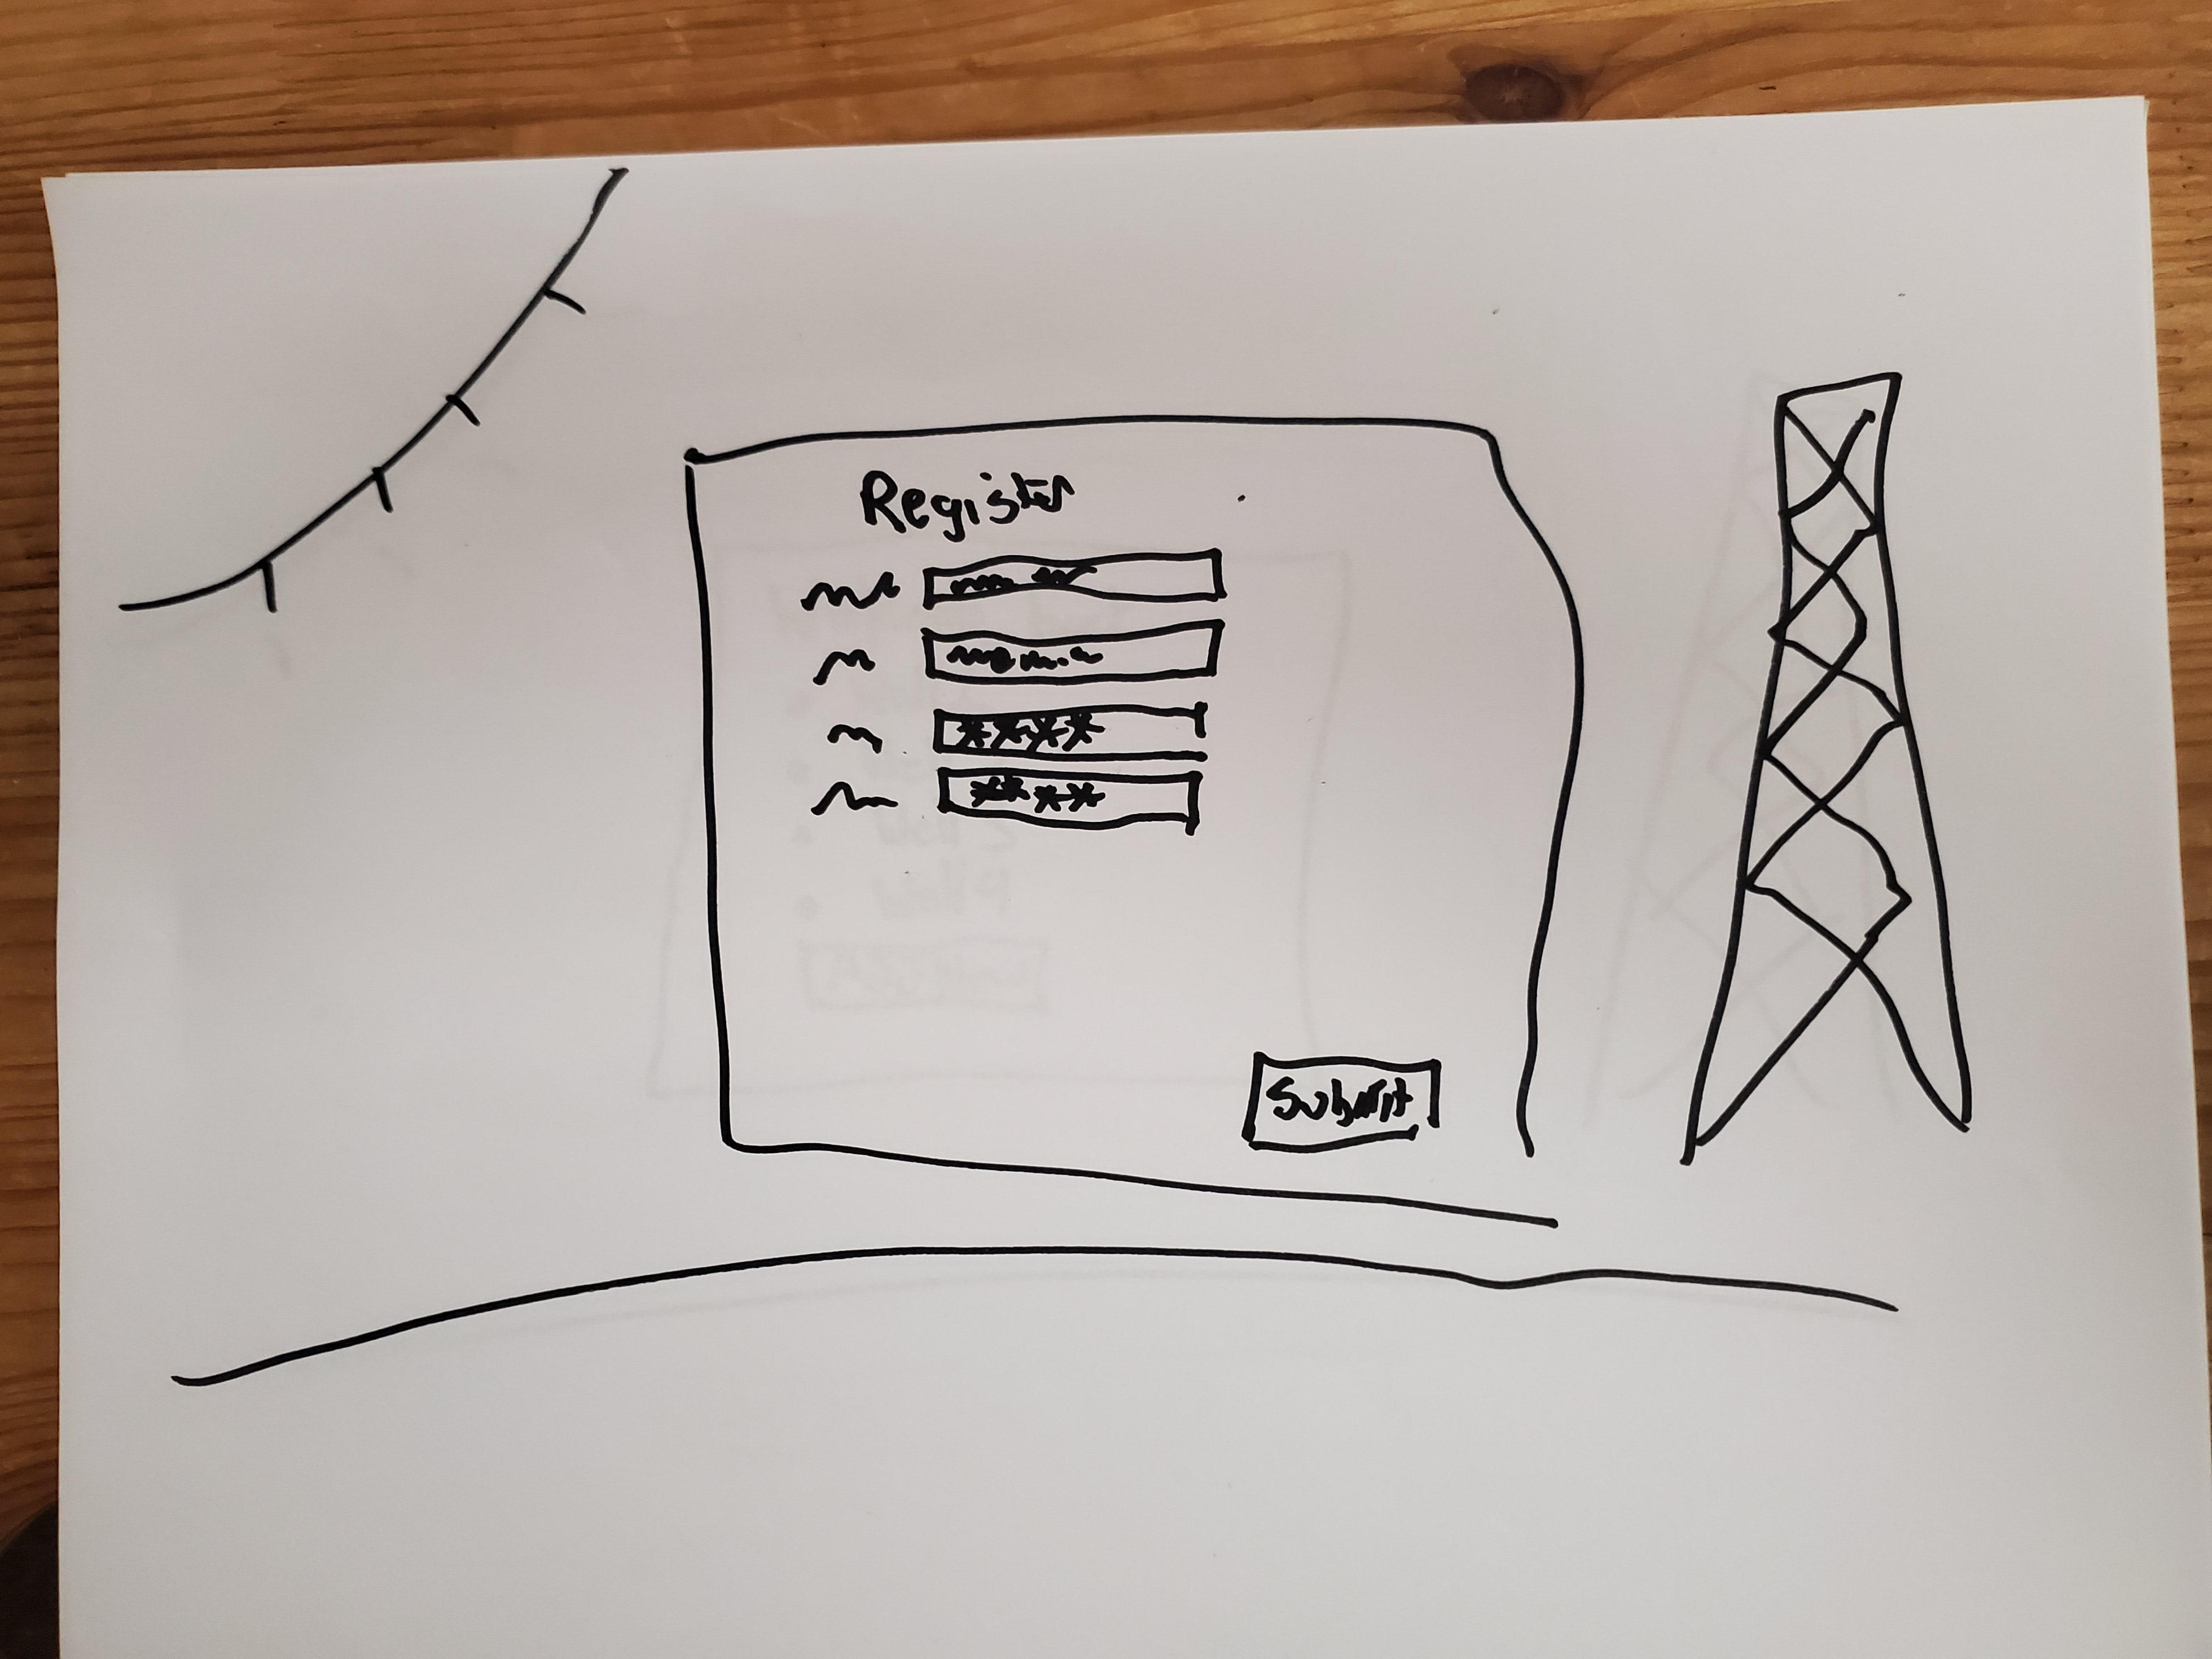 Register
****
****
Submit